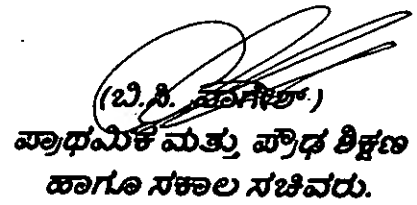 (ಬಿ.ಸಿ. ನಾಗೇಶ್)
ಪ್ರಾಥಮಿಕ ಮತ್ತು ಪ್ರೌಢ ಶಿಕ್ಷಣ
ಹಾಗೂ ಸಕಾಲ ಸಚಿವರು.